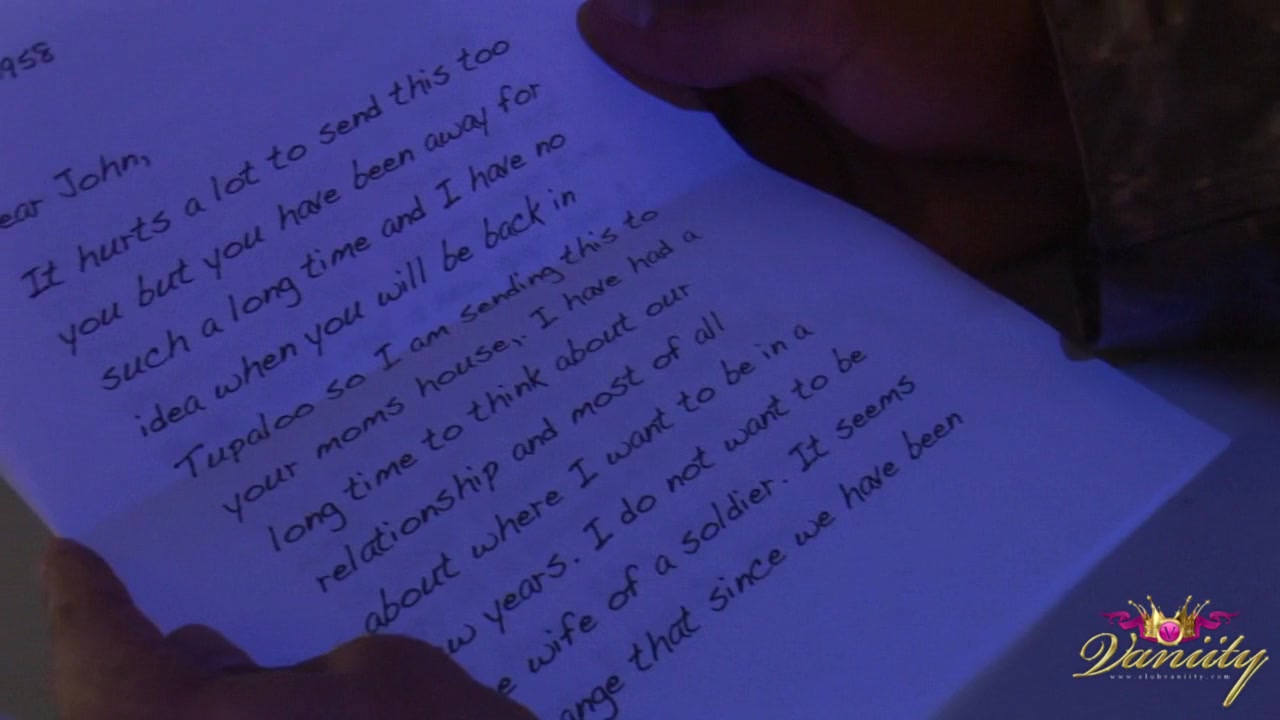 1958
ear John,
It hurts a lot to send this too
you but you have been away for
such a long time and I have no
idea when you will be back in
Tupaloo so I am sending this to
your moms house. I have had a
long time to think about our
relationship and most of all
about where I want to be in a
w years. I do not want to be
e wife of a soldier. It seems
ange that since we have been
Vaniity
www.clubvaniity.com